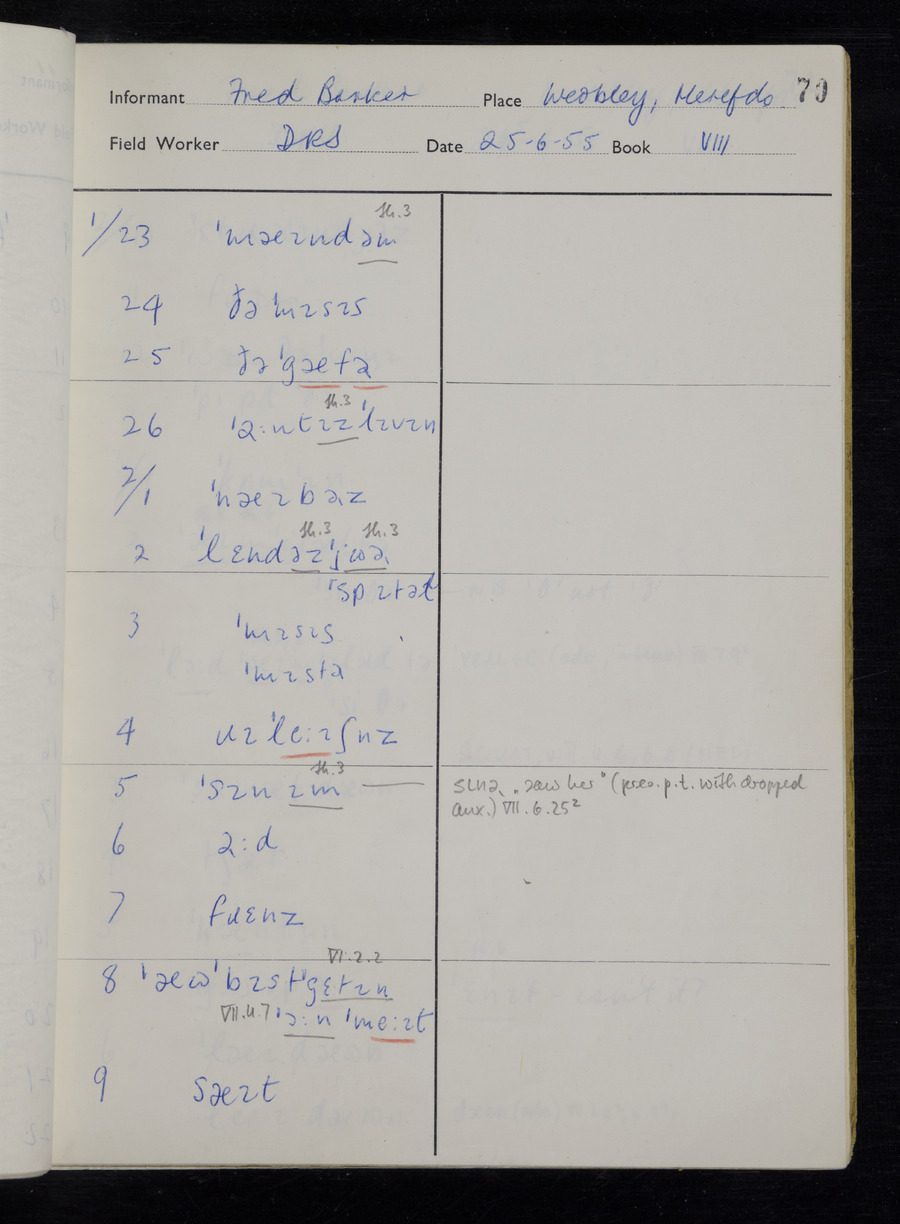 Informant Fred Barker Place Weobley, Herefds 79
Field Worker DRS Date 25-6-55 Book VIII
sh.3
1/23 ˈmæɪndəm
24 ðə ˈmɪsɪs
25 ðə ˈgæfə
sh.3
26 ˈɑ:ntɪz ˈlɪvɪn
2/1 ˈnæɪbəz
sh.3 sh.3
2 ˈlɛndəz ˈjɷə
ˈspɪtət
3 ˈmɪsɪs
ˈmɪstə
4 ɹɪˈle:ɪʃnz
sh.3
5 ˈsɪn ɪm — sɪnə "saw her" (pres. p.t. with dropped
aux.) VII.6.25²
6 ɑ:d
7 fɹɛnz
VI.2.2
8 ˈæɷ ˈbɪst ˈgɛtɪn
VII.4.7 ˈɔ:n ˈme:ɪt
9 sæɪt